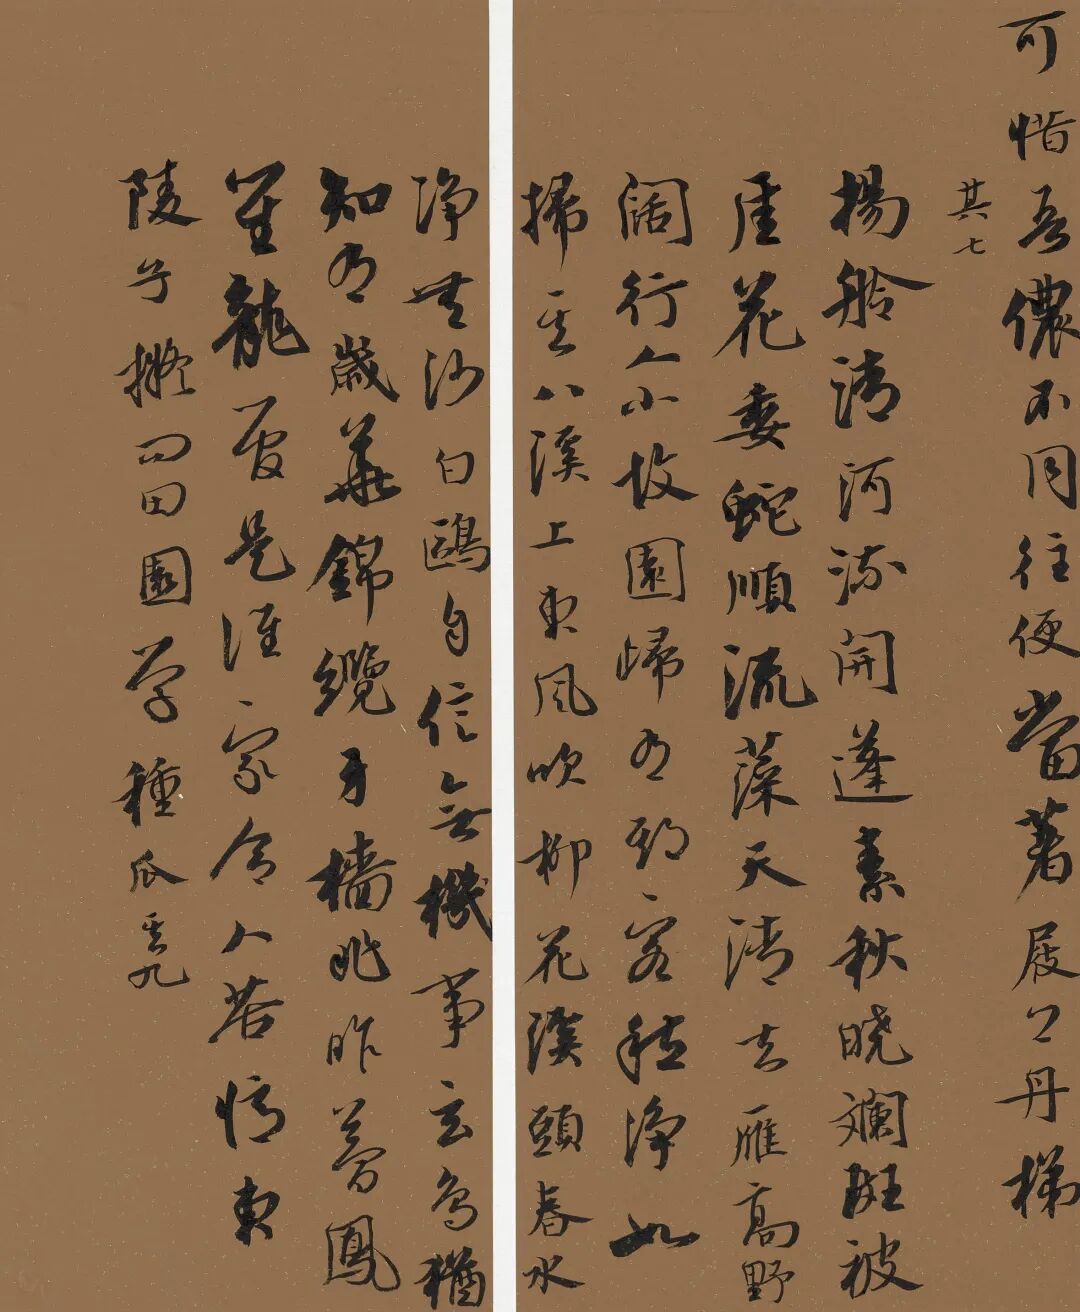 可惜吾儂不同往便當著屐上丹梯
其七
揚舲清河流開蓬素秋曉斕斑被
厓花委蛇順流藻天清去雁高野
闊行人小故園歸有期客愁淨如
掃其八溪上東風吹柳花溪頭春水
淨無沙白鷗自信無機事玄鳥猶
知有歲華錦纜牙檣非昨夢鳳
笙龍管是誰家令人苦憶東
陵子擬向田園學種瓜其九